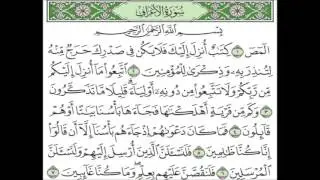 سُورَةُ الأَعْرَافِ
بِسْمِ اللَّهِ الرَّحْمَٰنِ الرَّحِيمِ
الٓمٓصٓ ١ كِتَٰبٌ أُنزِلَ إِلَيْكَ فَلَا يَكُن فِى صَدْرِكَ حَرَجٌ مِّنْهُ
لِتُنذِرَ بِهِۦ وَذِكْرَىٰ لِلْمُؤْمِنِينَ ٢ ٱتَّبِعُوا۟ مَآ أُنزِلَ إِلَيْكُم
مِّن رَّبِّكُمْ وَلَا تَتَّبِعُوا۟ مِن دُونِهِۦٓ أَوْلِيَآءَ قَلِيلًا مَّا تَذَكَّرُونَ
٣ وَكَم مِّن قَرْيَةٍ أَهْلَكْنَٰهَا فَجَآءَهَا بَأْسُنَا بَيَٰتًا أَوْ هُمْ
قَآئِلُونَ ٤ فَمَا كَانَ دَعْوَىٰهُمْ إِذْ جَآءَهُم بَأْسُنَآ إِلَّآ أَن قَالُوٓا۟
إِنَّا كُنَّا ظَٰلِمِينَ ٥ فَلَنَسْـَٔلَنَّ ٱلَّذِينَ أُرْسِلَ إِلَيْهِمْ وَلَنَسْـَٔلَنَّ
ٱلْمُرْسَلِينَ ٦ فَلَنَقُصَّنَّ عَلَيْهِم بِعِلْمٍ وَمَا كُنَّا غَآئِبِينَ ٧